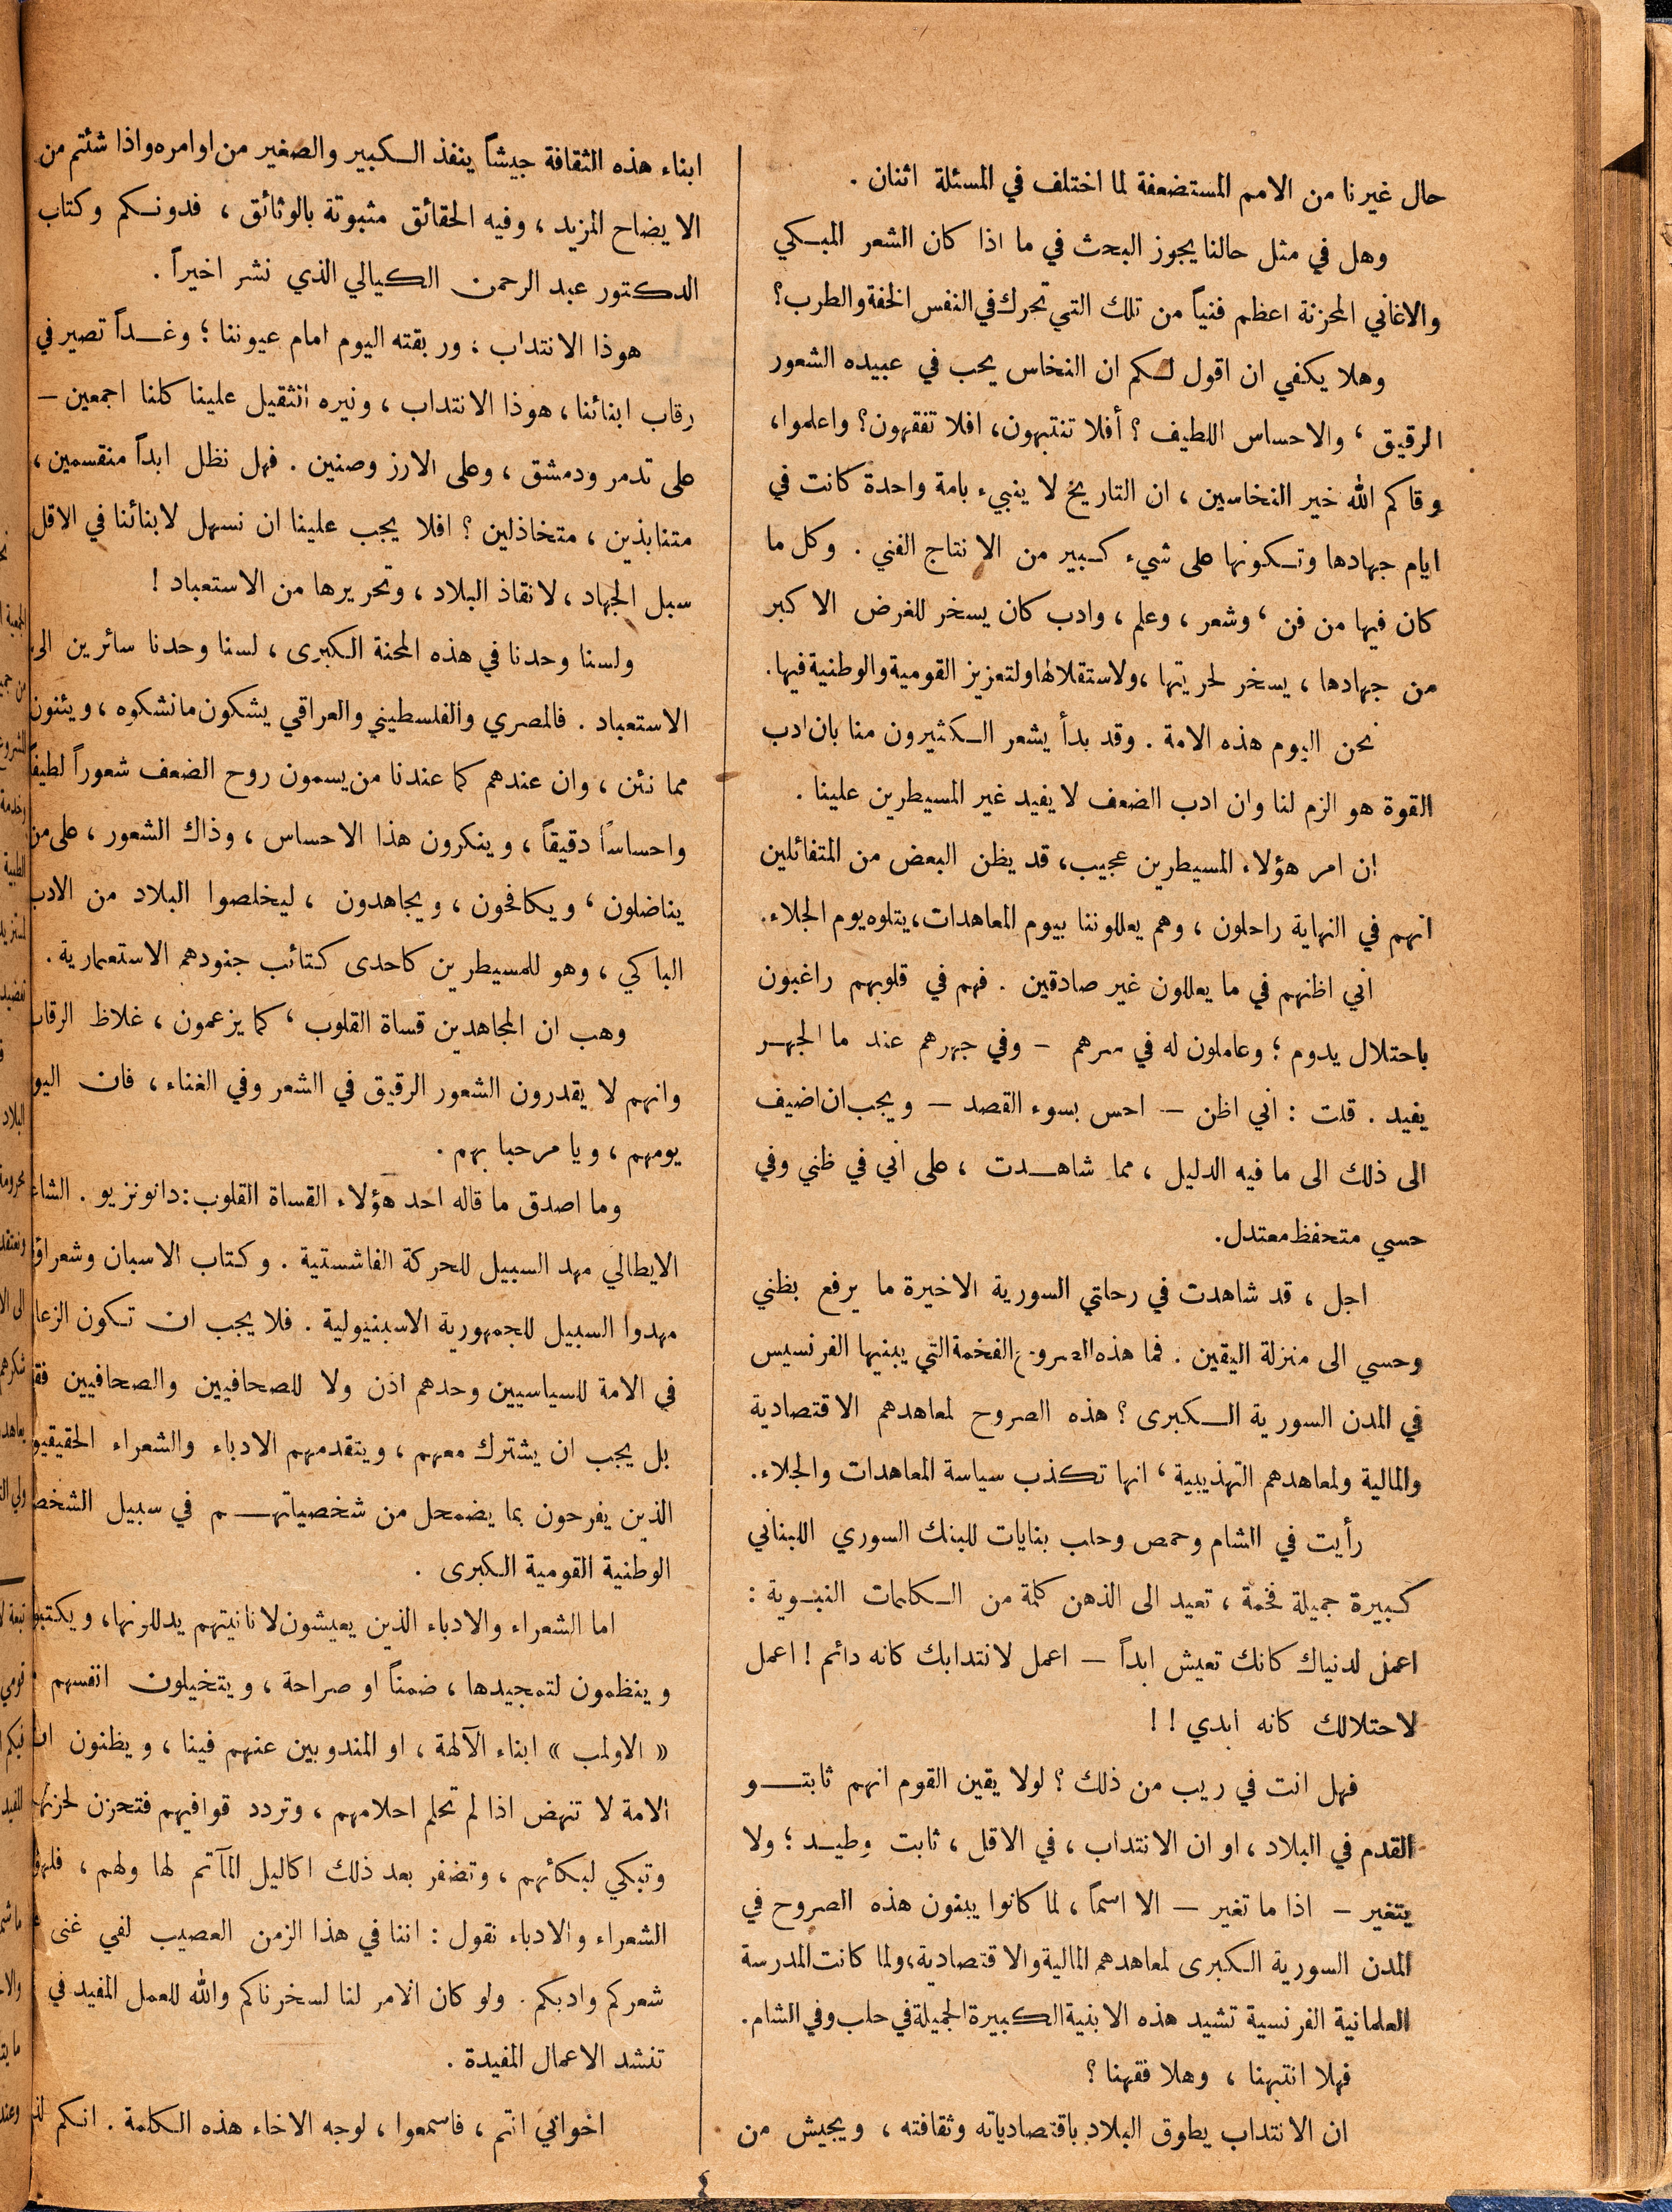 حال غيرنا من الامم المستضعفة لما اختلف في المسئلة اثنان .
وهل في مثل حالنا يجوز البحث في ما اذا كان الشعر المبكي
والاغاني المحزنة اعظم فنياً من تلك التي تحرك في النفس الخفة والطرب؟
وهلا يكفي ان اقول لكم ان النخاس يحب في عبيده الشعور
الرقيق ، والاحساس اللطيف ؟ أفلا تنتبهون، افلا تفقهون؟ واعلموا،
وقاكم الله خير النخاسين ، ان التاريخ لا ينبيء بامة واحدة كانت في
ايام جهادها وتكونها على شيء كبير من الانتاج الفني . وكل ما
كان فيها من فن ، وشعر ، وعلم ، وادب كان يسخر للغرض الاكبر
من جهادها ، يسخر لحريتها ، ولاستقلالها ولتعزيز القومية والوطنية فيها.
نحن اليوم هذه الامة . وقد بدأ يشعر الكثيرون منا بان ادب
القوة هو الزم لنا وان ادب الضعف لا يفيد غير المسيطرين علينا .
ان امر هؤلاء المسيطرين عجيب، قد يظن البعض من المتفائلين
انهم في النهاية راحلون ، وهم يعللوننا بيوم المعاهدات، يتلوه يوم الجلاء.
اني اظنهم في ما يعللون غير صادقين . فهم في قلوبهم راغبون
باحتلال يدوم ؛ وعاملون له في سرهم – وفي جهرهم عند ما الجهر
يفيد . قلت : اني اظن – احس بسوء القصد – ويجب ان اضيف
الى ذلك الى ما فيه الدليل ، مما شاهدت ، على اني في ظني وفي
حسي متحفظ معتدل.
اجل ، قد شاهدت في رحلتي السورية الاخيرة ما يرفع بظني
وحسي الى منزلة اليقين . فما هذه الصروح الفخمة التي يبنيها الفرنسيس
في المدن السورية الكبرى ؟ هذه الصروح لمعاهدهم الاقتصادية
والمالية ولمعاهدهم التهذيبية ، انها تكذب سياسة المعاهدات والجلاء.
رأيت في الشام وحمص وحلب بنايات للبنك السوري اللبناني
كبيرة جميلة فخمة ، تعيد الى الذهن كلمة من الكلمات النبوية :
اعمل لدنياك كانك تعيش ابداً – اعمل لانتدابك كانه دائم ! اعمل
لاحتلالك كانه ابدي ! !
فهل انت في ريب من ذلك ؟ لولا يقين القوم انهم ثابتو
القدم في البلاد ، او ان الانتداب ، في الاقل ، ثابت وطيد ؛ ولا
يتغير – اذا ما تغير – الا اسماً ، لما كانوا يبنون هذه الصروح في
المدن السورية الكبرى لمعاهدهم المالية والاقتصادية، ولما كانت المدرسة
العلمانية الفرنسية تشيد هذه الابنية الكبيرة الجميلة في حلب وفي الشام.
فهلا انتبهنا ، وهلا فقهنا ؟
ان الانتداب يطوق البلاد باقتصادياته وثقافته ، ويجيش من
ابناء هذه الثقافة جيشاً ينفذ الكبير والصغير من اوامره واذا شئتم من
الايضاح المزيد ، وفيه الحقائق مثبوتة بالوثائق ، فدونكم وكتاب
الدكتور عبد الرحمن الكيالي الذي نشر اخيراً .
هوذا الانتداب ، وربقته اليوم امام عيوننا ؛ وغداً تصير في
رقاب ابنائنا ، هوذا الانتداب ، ونيره الثقيل علينا كلنا اجمعين –
على تدمر ودمشق ، وعلى الارز وصنين . فهل نظل ابداً منقسمين ،
متنابذين ، متخاذلين ؟ افلا يجب علينا ان نسهل لابنائنا في الاقل
سبل الجهاد ، لانقاذ البلاد ، وتحريرها من الاستعباد !
ولسنا وحدنا في هذه المحنة الكبرى ، لسنا وحدنا سائرين الى
الاستعباد . فالمصري والفلسطيني والعراقي يشكون ما نشكوه ، ويئنون
مما نئن ، وان عندهم كما عندنا من يسمون روح الضعف شعوراً لطيفاً
واحساساً دقيقاً ، وينكرون هذا الاحساس ، وذاك الشعور ، على من
يناضلون ، ويكافحون ، ويجاهدون ، ليخلصوا البلاد من الادب
الباكي ، وهو للمسيطرين كاحدى كتائب جنودهم الاستعمارية .
وهب ان المجاهدين قساة القلوب ، كما يزعمون ، غلاظ الرقاب
وانهم لا يقدرون الشعور الرقيق في الشعر وفي الغناء ، فان
يومهم ، ويا مرحبا بهم .
وما اصدق ما قاله احد هؤلاء القساة القلوب : دانونزيو .
الايطالي مهد السبيل للحركة الفاشستية . وكتاب الاسبان
مهدوا السبيل للجمهورية الاسبنيولية . فلا يجب ان تكون
في الامة للسياسيين وحدهم اذن ولا للصحافيين والصحافيين
بل يجب ان يشترك معهم ، ويتقدمهم الادباء والشعراء
الذين يفرحون بما يضمحل من شخصياتهم في سبيل
الوطنية القومية الكبرى .
اما الشعراء والادباء الذين يعيشون لانانيتهم يدللونها،
وينظمون لتمجيدها ، ضمناً او صراحة ، ويتخيلون انفسهم
« الاولمب » ابناء الآلهة ، او المندوبين عنهم فينا ، ويظنون ان
الامة لا تنهض اذا لم تحلم احلامهم ، وتردد قوافيهم فتحزن
وتبكي لبكائهم ، وتضفر بعد ذلك اكاليل المآتم لها ولهم ،
الشعراء والادباء نقول : اننا في هذا الزمن العصيب لفي غنى
شعركم وادبكم . ولو كان الامر لنا لسخرناكم والله للعمل المفيد في
تنشد الاعمال المفيدة .
اخواني انتم ، فاسمعوا ، لوجه الاخاء هذه الكلمة . انكم
٤